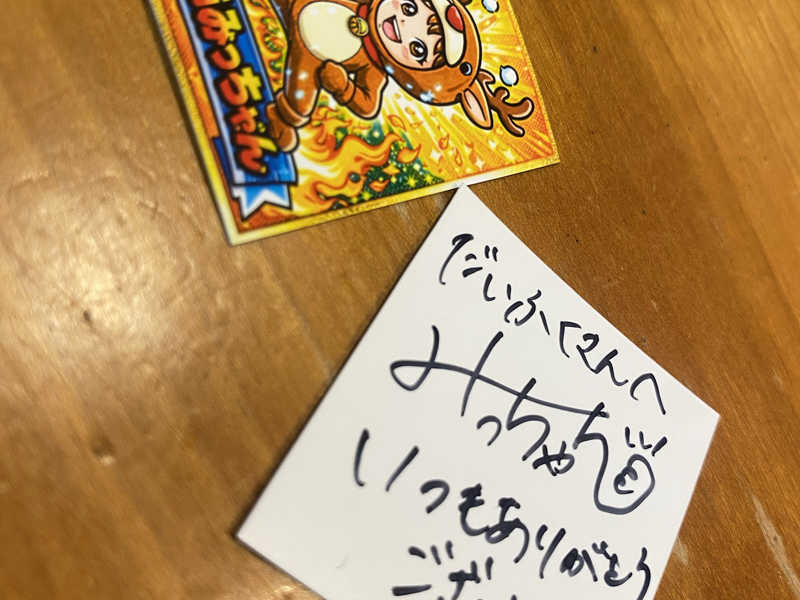 みっちゃん
だいふくさんへ
みっちゃん
いつもありがとう
ござ